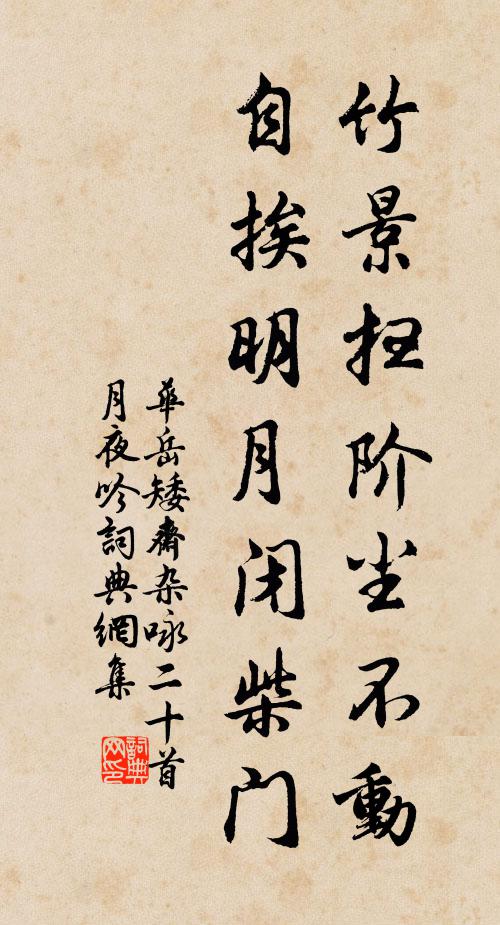 竹景扫阶尘不動
自挨明月闭柴门
華岳矮齋杂咏二十首
月夜吟詞典網集
詞典网印